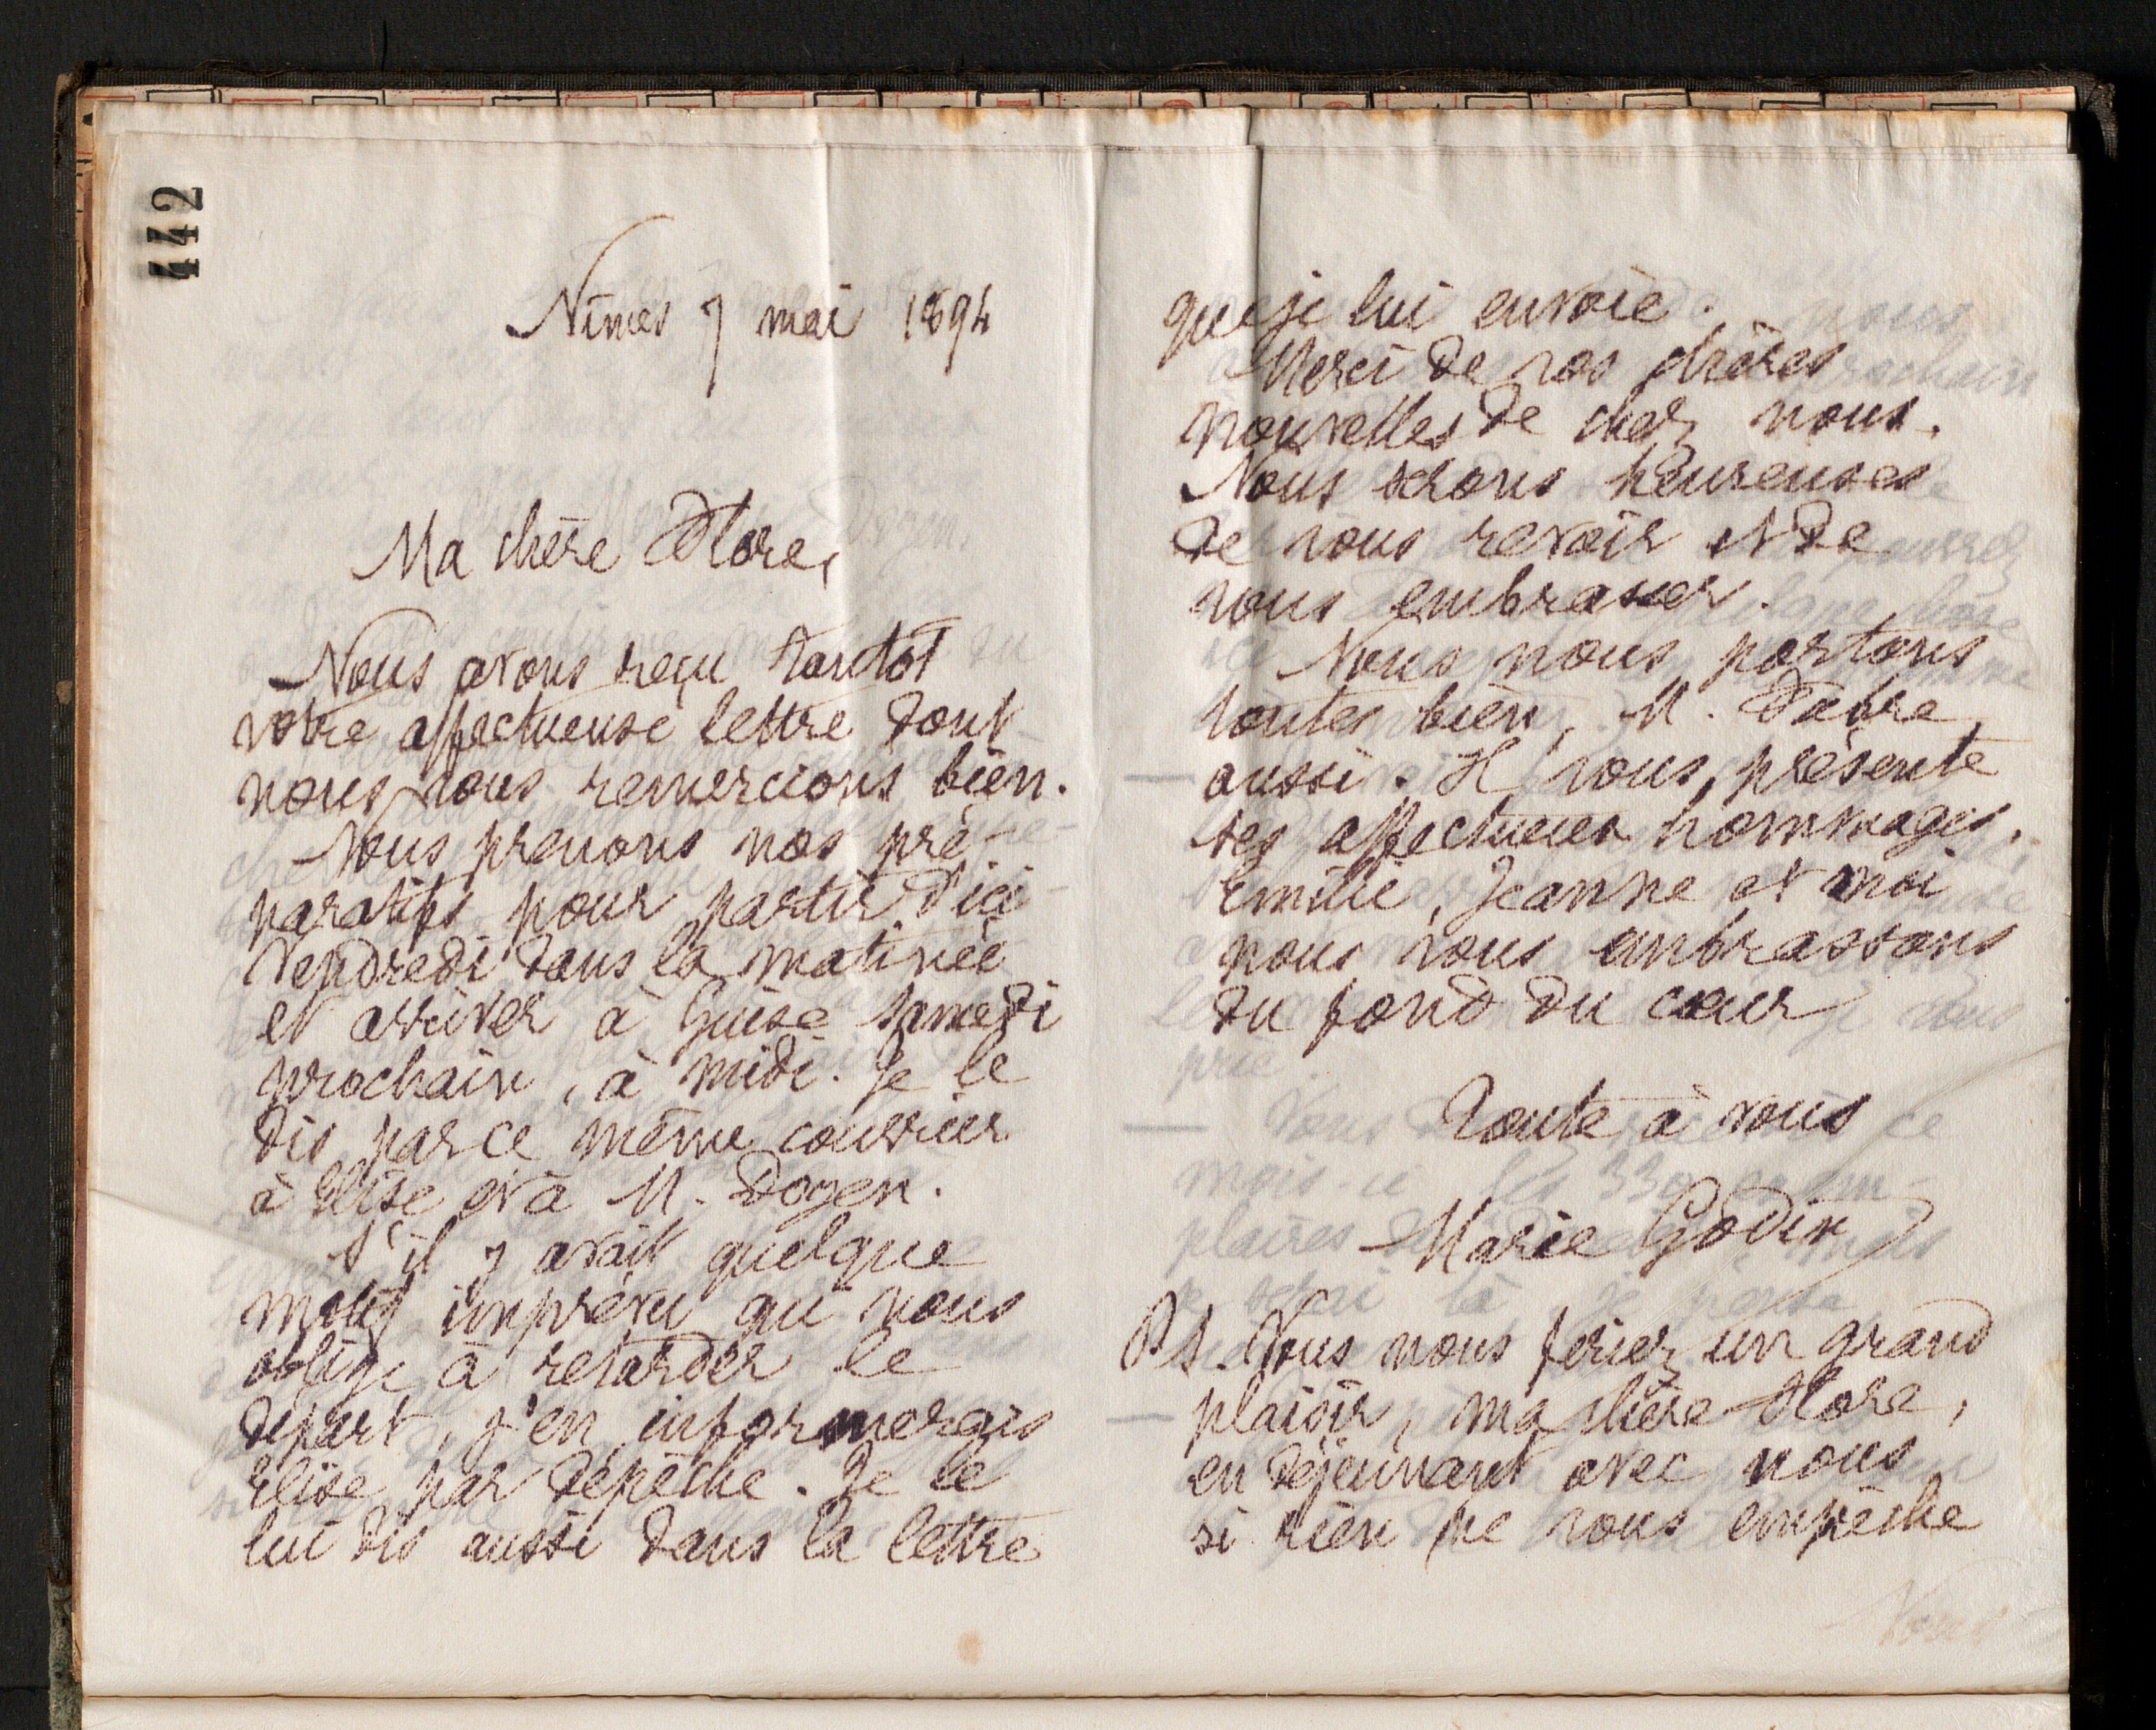 442
Nîmes 7 mai 1894
Ma chère Flore,
Nous avons reçu tantôt
votre affectueuse lettre dont
nous vous remercions bien.
Nous prenons nos pré-
paratifs pour partir d'ici
Vendredi dans la matinée
et arriver à Guise samedi
prochain, à midi. Je le
dis par ce même courrier
à Élise et à M. Doyen.
S'il y avait quelque
motif imprévu qui nous
oblige à retarder le
départ, j'en informerais
Élise par dépêche. Je le
lui dis aussi dans la lettre
que je lui envoie.
Merci de vos chères
nouvelles de chez nous.
Nous serons heureuses
de vous revoir et de
vous embrasser.
Nous nous portons
toutes bien, M. Fabre
aussi. Il vous présente
ses affectueux hommages.
Emilie, Jeanne et moi
nous vous embrassons
du fond du cœur
Toute à vous
Marie Godin
PS. Vous nous feriez un grand
plaisir, ma chère Flore,
en déjeunant avec nous
si rien ne vous empêche